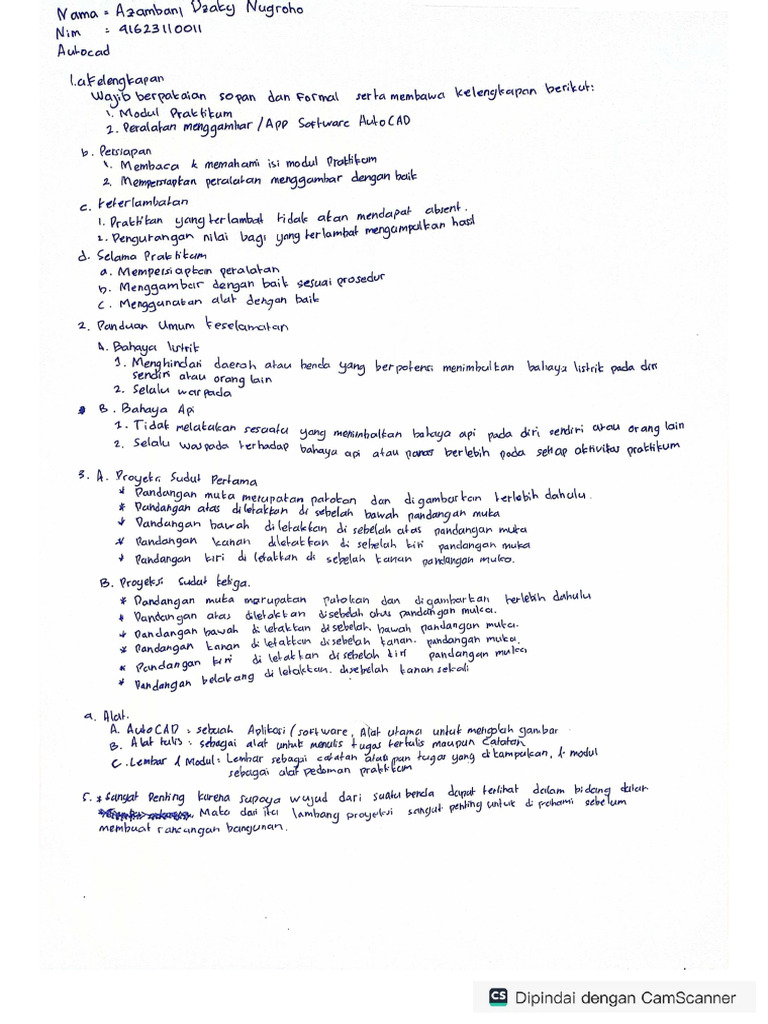 Nama = Azambani Dzaky Nugroho
Nim : 41623110011
Autocad
1.a Kelengkapan
Wajib berpakaian sopan dan Formal serta membawa kelengkapan berikut:
1. Modul Praktikum
2. Peralatan menggambar / App Software AutoCAD
b. Persiapan
1. Membaca & memahami isi modul Praktikum
2. Mempersiapkan peralatan menggambar dengan baik
c. Keterlambatan
1. Praktikan yang terlambat tidak akan mendapat absent.
2. Pengurangan nilai bagi yang terlambat mengumpulkan hasil
d. Selama Praktikum
a. Mempersiapkan peralatan
b. Menggambar dengan baik sesuai prosedur
c. Menggunakan alat dengan baik
2. Panduan Umum Keselamatan
A. Bahaya listrik
1. Menghindari daerah atau benda yang berpotensi menimbulkan bahaya listrik pada diri
sendiri atau orang lain
2. Selalu waspada
B. Bahaya Api
1. Tidak melakukan sesuatu yang menimbulkan bahaya api pada diri sendiri atau orang lain
2. Selalu waspada terhadap bahaya api atau panas berlebih pada setiap aktivitas praktikum
3. A. Proyeksi Sudut Pertama
* Pandangan muka merupakan patokan dan digambarkan terlebih dahulu.
* Pandangan atas diletakkan di sebelah bawah pandangan muka
* Pandangan bawah diletakkan di sebelah atas pandangan muka
* Pandangan kanan diletakkan di sebelah kiri pandangan muka
* Pandangan kiri diletakkan di sebelah kanan pandangan muka.
B. Proyeksi Sudut ketiga.
* Pandangan muka merupakan patokan dan digambarkan terlebih dahulu
* Pandangan atas diletakkan disebelah atas pandangan muka.
* Pandangan bawah diletakkan disebelah. bawah pandangan muka.
* Pandangan kanan diletakkan disebelah kanan. pandangan muka.
* Pandangan kiri diletakkan disebelah kiri pandangan muka
* Pandangan belakang diletakkan. disebelah kanan sekali
a. Alat.
A. AutoCAD : sebuah Aplikasi / software, Alat utama untuk mengolah gambar
B. Alat tulis : sebagai alat untuk menulis tugas tertulis maupun catatan
C. Lembar & Modul : Lembar sebagai catatan atau pun tugas yang dikumpulkan, & modul
sebagai alat pedoman praktikum
5. * Sangat Penting karena supaya wujud dari suatu benda dapat terlihat dalam bidang datar
Maka dari itu lambang proyeksi sangat penting untuk difahami sebelum
membuat rancangan bangunan.
CS Dipindai dengan CamScanner